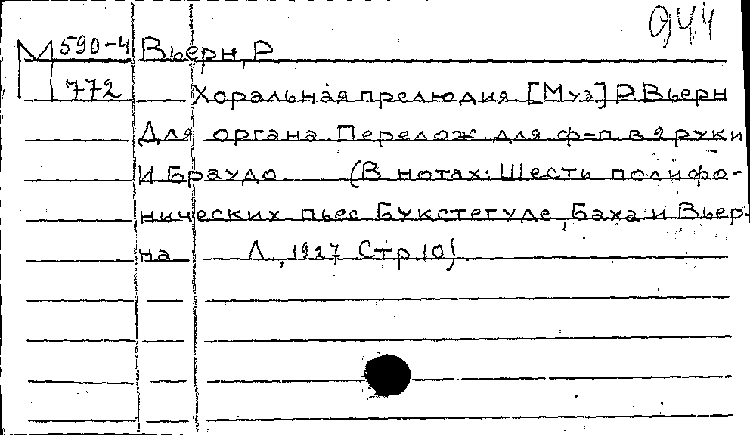 944
М 590-4 Вьерн, Р
772 Хоральная прелюдия [Муз] Р. Вьерн
Для органа Перелож для ф-п в 2 руки
И Браудо (В нотах: Шесть полифо-
нических пьес Букстегуде, Баха и Вьер-
на Л, 1927 Стр 10)